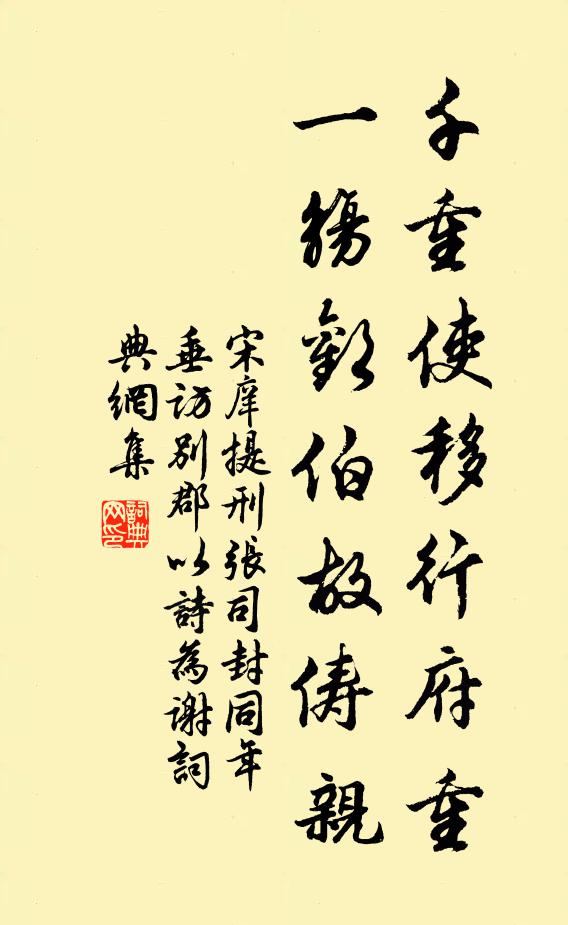 千重使移行府重
一觴歡伯故儔親
宋庠提刑張司封同年
垂訪別郡以詩為謝詞
典網集
詞典
网印